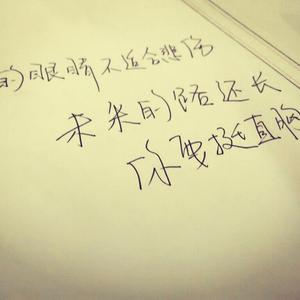 的眼睛不适合悲伤
未来的路还长
你要挺直胸